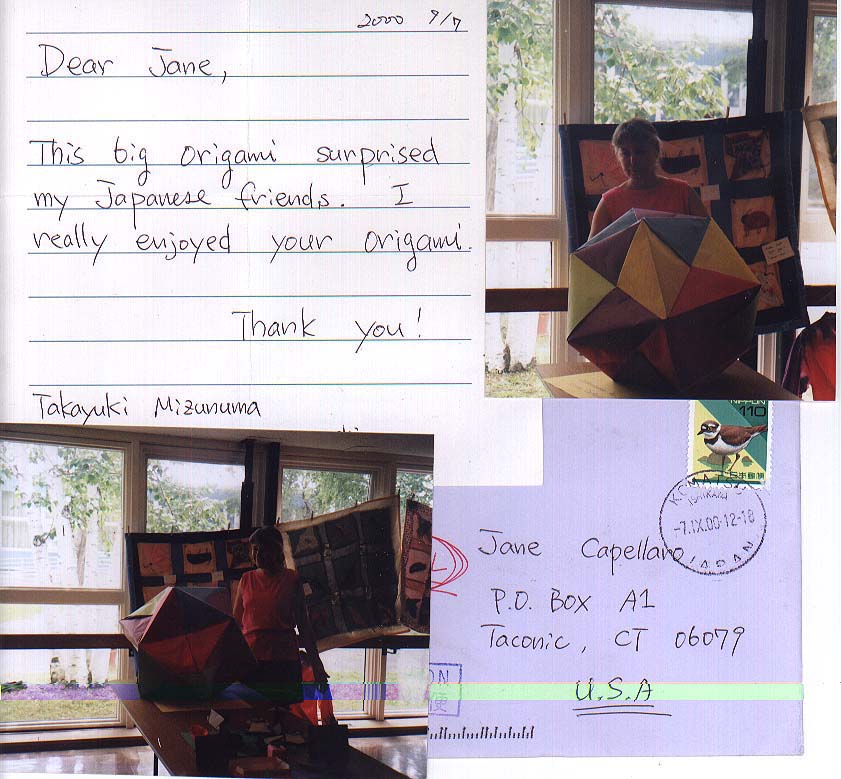 2000 9/7
Dear Jane,
This big origami surprised
my Japanese friends. I
really enjoyed your origami.
Thank you!
Takayuki Mizunuma
NIPPON
110
日本郵便
KOMATSU
ISHIKAWA
-7.IX.00-12-18
JAPAN
Jane Capellaro
P.O. Box A1
Taconic, CT 06079
U.S.A